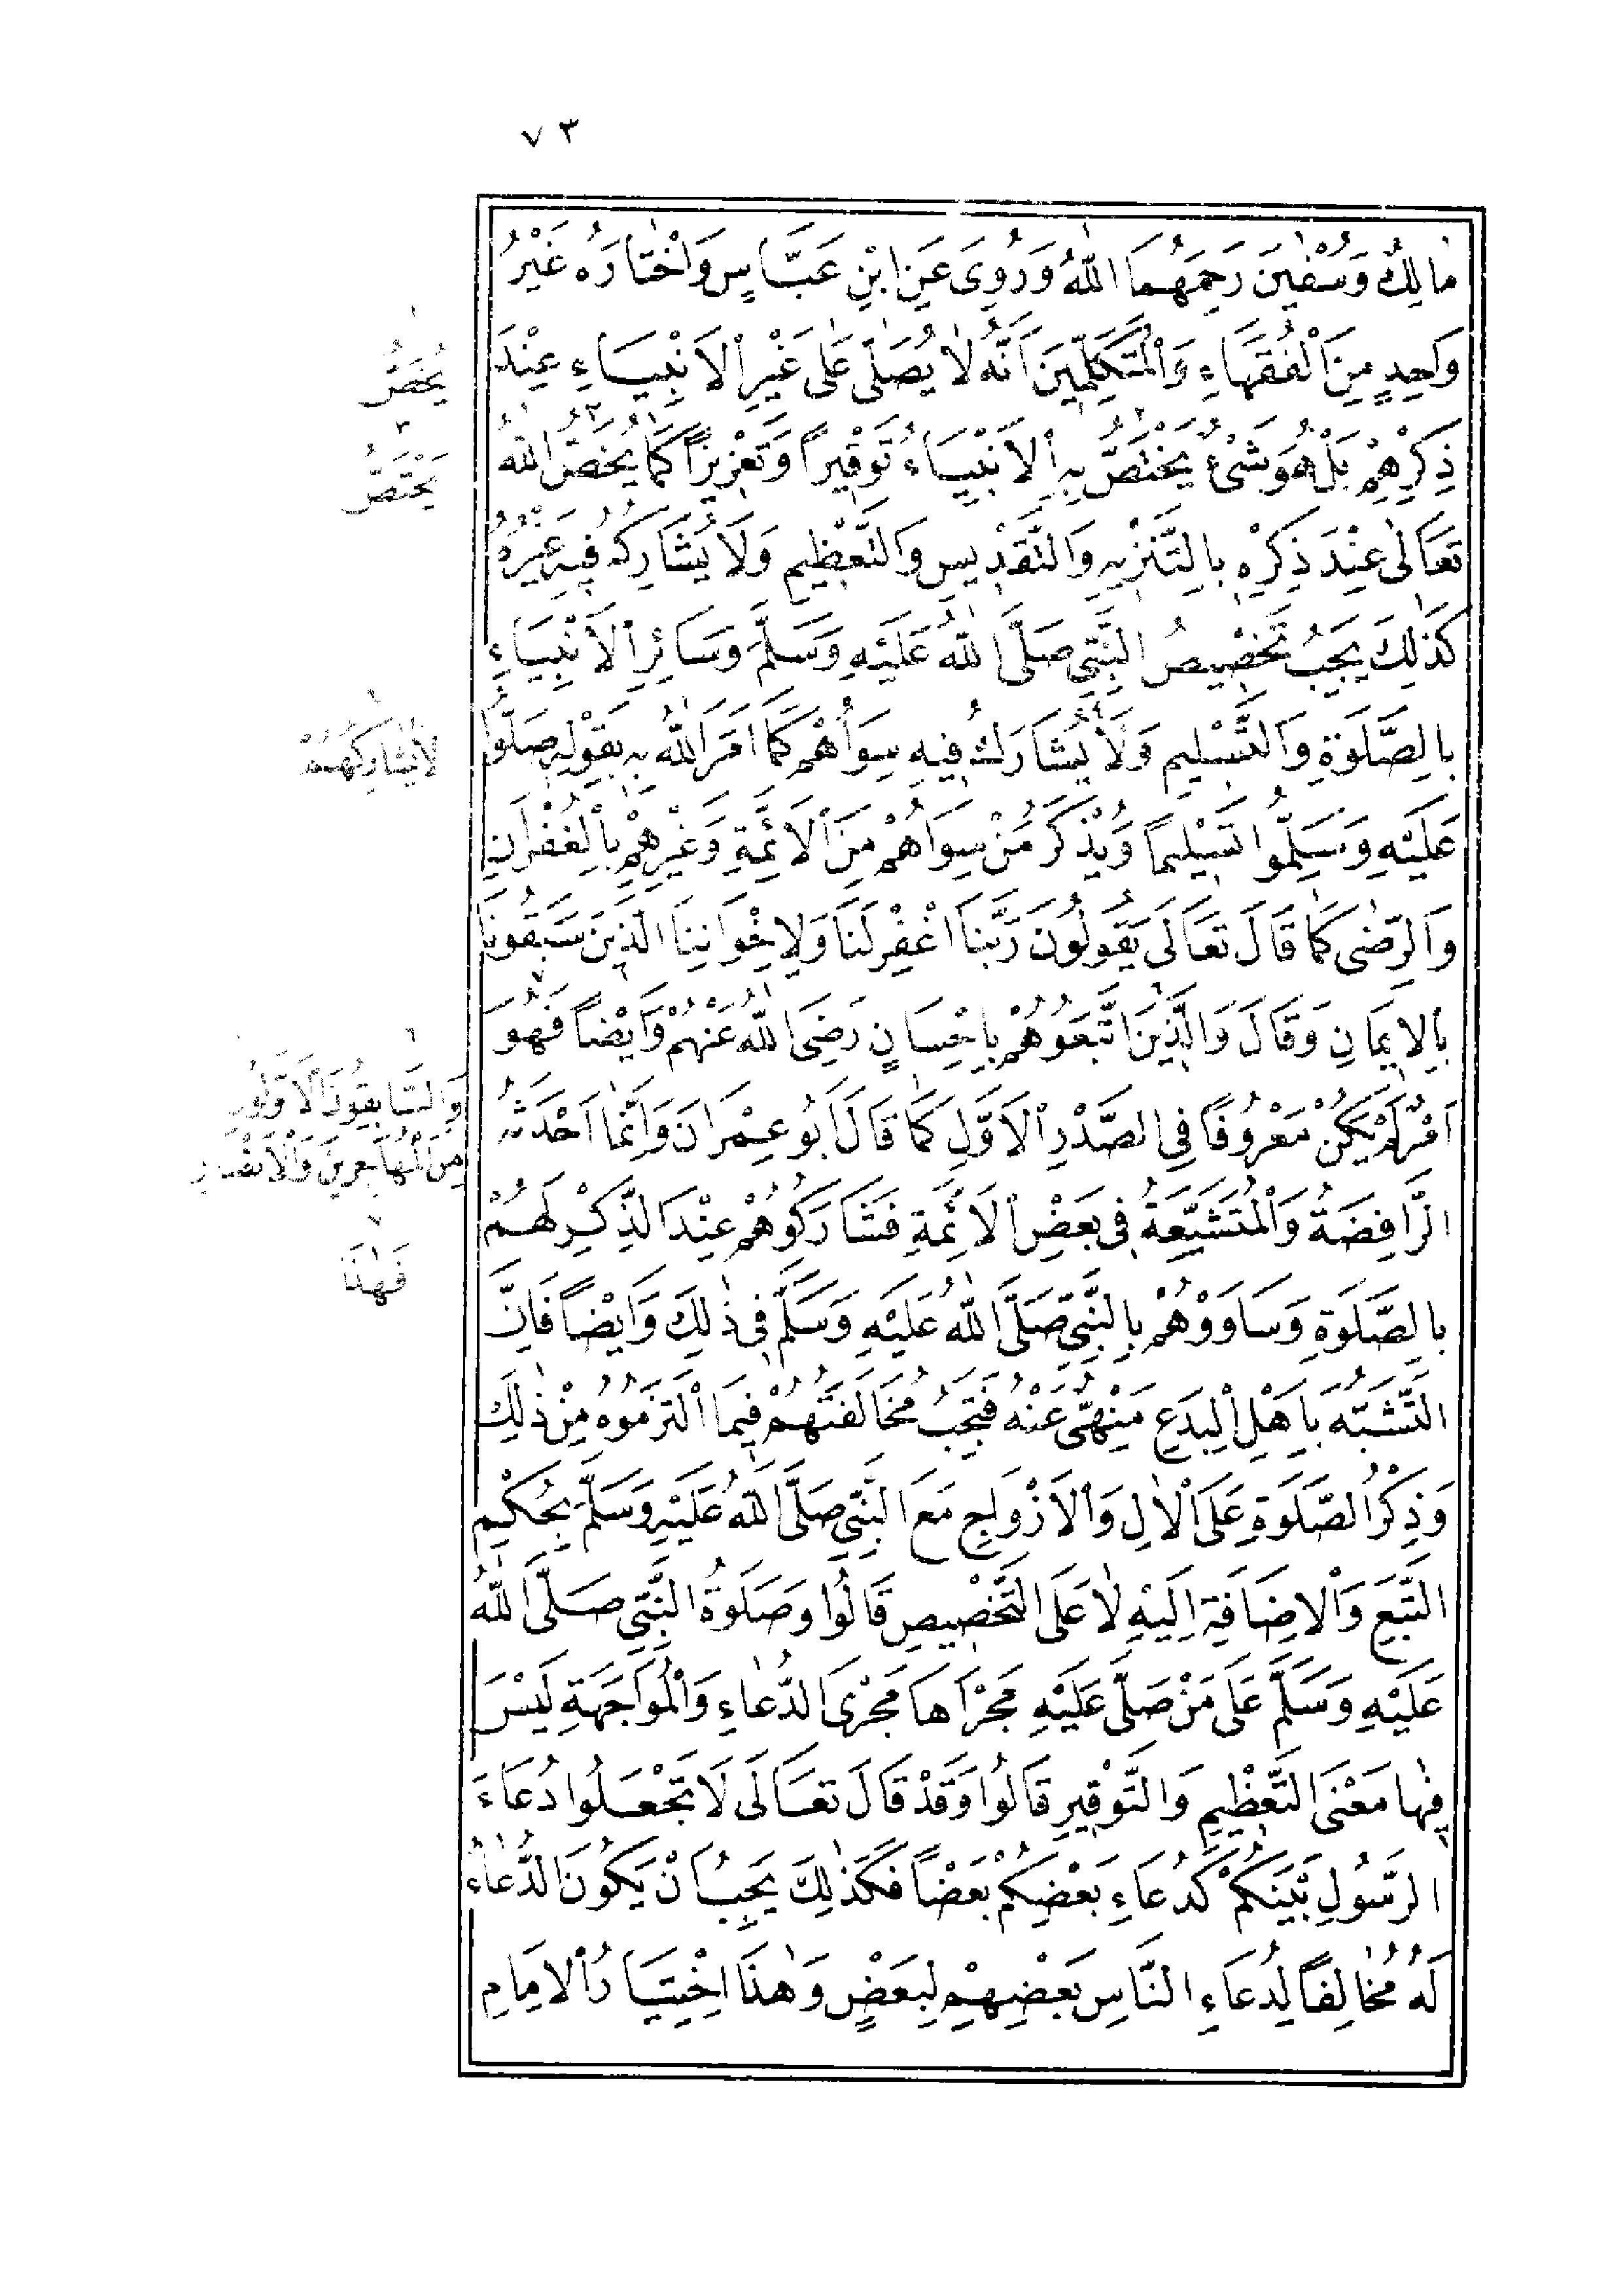 ٧٣
مَالِكٌ وَسُفْيٰنَ رَحِمَهُمَا اللّٰهُ وَرُوِىَ عَنِ ابْنِ عَبَّاسٍ وَاخْتَارَهُ غَيْرُ
وَاحِدٍ مِنَ الْفُقَهَاءِ وَالْمُتَكَلِّمِينَ اَنَّهُ لَا يُصَلّٰى عَلٰى غَيْرِ الْاَنْبِيَاءِ عِنْدَ
ذِكْرِهِمْ بَلْ هُوَ شَىْءٌ يَخْتَصُّ بِهِ الْاَنْبِيَاءُ تَوْقِيرًا وَتَعْزِيزًا كَمَا يُخَصُّ اللّٰهُ
تَعَالٰى عِنْدَ ذِكْرِهِ بِالتَّنْزِيهِ وَالتَّقْدِيسِ وَالتَّعْظِيمِ وَلَا يُشَارِكُهُ فِيهِ غَيْرُهُ
كَذٰلِكَ يَجِبُ تَخْصِيصُ النَّبِىِّ صَلَّى اللّٰهُ عَلَيْهِ وَسَلَّمَ وَسَائِرِ الْاَنْبِيَاءِ
بِالصَّلٰوةِ وَالتَّسْلِيمِ وَلَا يُشَارَكُ فِيهِ سِوَاهُمْ كَمَا اَمَرَ اللّٰهُ بِهِ بِقَوْلِهِ صَلُّوا
عَلَيْهِ وَسَلِّمُوا تَسْلِيمًا وَيُذْكَرُ مَنْ سِوَاهُمْ مِنَ الْاَئِمَّةِ وَغَيْرِهِمْ بِالْغُفْرَانِ
وَالرِّضٰى كَمَا قَالَ تَعَالَى يَقُولُونَ رَبَّنَا اغْفِرْ لَنَا وَلِاِخْوَانِنَا الَّذِينَ سَبَقُونَا
بِالْاِيمَانِ وَقَالَ وَالَّذِينَ اتَّبَعُوهُمْ بِاِحْسَانٍ رَضِىَ اللّٰهُ عَنْهُمْ وَاَيْضًا فَهُوَ
اَمْرٌ لَمْ يَكُنْ مَعْرُوفًا فِى الصَّدْرِ الْاَوَّلِ كَمَا قَالَ اَبُو عِمْرَانَ وَاِنَّمَا اَحْدَثَهُ
الرَّافِضَةُ وَالْمُتَشَيِّعَةُ فِى بَعْضِ الْاَئِمَّةِ فَشَارَكُوهُمْ عِنْدَ الذِّكْرِ لَهُمْ
بِالصَّلٰوةِ وَسَاوَوْهُمْ بِالنَّبِىِّ صَلَّى اللّٰهُ عَلَيْهِ وَسَلَّمَ فِى ذٰلِكَ وَاَيْضًا فَاِنَّ
التَّشَبُّهَ بِاَهْلِ الْبِدَعِ مَنْهِىٌّ عَنْهُ فَتَجِبُ مُخَالَفَتُهُمْ فِيمَا الْتَزَمُوهُ مِنْ ذٰلِكَ
وَذِكْرُ الصَّلٰوةِ عَلَى الْاٰلِ وَالْاَزْوَاجِ مَعَ النَّبِىِّ صَلَّى اللّٰهُ عَلَيْهِ وَسَلَّمَ بِحُكْمِ
التَّبَعِ وَالْاِضَافَةِ اِلَيْهِ لَا عَلَى التَّخْصِيصِ قَالُوا وَصَلٰوةُ النَّبِىِّ صَلَّى اللّٰهُ
عَلَيْهِ وَسَلَّمَ عَلَى مَنْ صَلَّى عَلَيْهِ مَجْرَاهَا مَجْرَى الدُّعَاءِ وَالْمُوَاجَهَةِ لَيْسَ
فِيهَا مَعْنَى التَّعْظِيمِ وَالتَّوْقِيرِ قَالُوا وَقَدْ قَالَ تَعَالَى لَا تَجْعَلُوا دُعَاءَ
الرَّسُولِ بَيْنَكُمْ كَدُعَاءِ بَعْضِكُمْ بَعْضًا فَكَذٰلِكَ يَجِبُ اَنْ يَكُونَ الدُّعَاءُ
لَهُ مُخَالِفًا لِدُعَاءِ النَّاسِ بَعْضِهِمْ لِبَعْضٍ وَهٰذَا اخْتِيَارُ الْاِمَامِ
يُخَصُّ
يَخْتَصُّ
لَا يُشَارِكُهُمْ
وَالسَّابِقُونَ الْاَوَّلُونَ
مِنَ الْمُهَاجِرِينَ وَالْاَنْصَارِ
فَهٰذَا